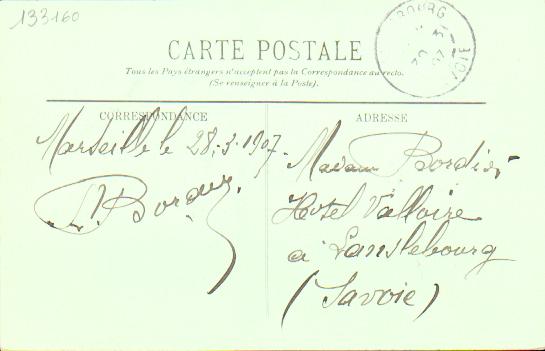 133160
BOURG
CARTE POSTALE
Tous les Pays étrangers n'acceptent pas la Correspondance au recto.
(Se renseigner à la Poste).
CORRESPONDANCE
Marseille le 28-3-1907.
ADRESSE
Madame Bordier
Hotel Valloire
à Lanslebourg
(Savoie)